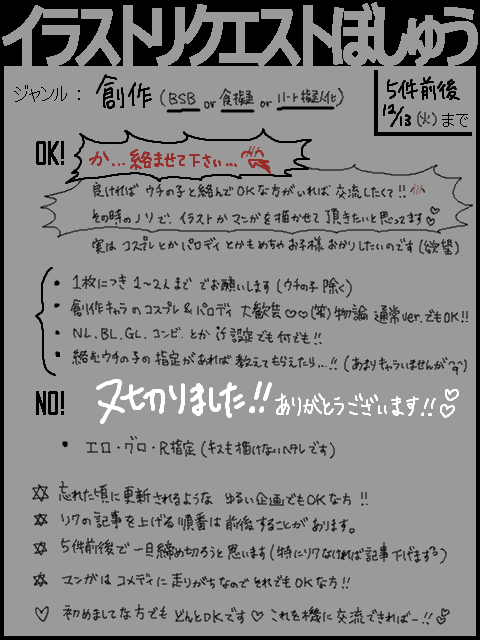 イラストリクエストぼしゅう
ジャンル : 創作 (BSB or 食擬 or ハート擬人化)
5件前後
12/13(火)まで
OK!
か…絡ませて下さい…
良ければ ウチの子と絡んでOKな方がいれば 交流したくて!!
その時のノリで、イラストかマンガを描かせて頂きたいと思ってます♡
実は コスプレとかパロディとかもめちゃお子様 おかりしたいのです (欲望)
・1枚につき 1〜2人まで でお願いします (ウチの子 除く)
・創作キャラのコスプレ&パロディ 大歓迎 ♡♡(笑) 物論 通常ver.でもOK!!
・NL、BL、GL、コンビ、とか 設定でも何でも!!
・絡むウチの子の指定があれば 教えてもらえたら…!! (あまりキャラいませんが^^)
NO!
〆切りました!! ありがとうございます!!♡
・エロ・グロ・R指定 (キスも描けないヘタレです)
☆ 忘れた頃に更新されるような ゆるい企画でもOKな方 !!
☆ リクの記事を上げる順番は前後することがあります。
☆ 5件前後で一旦締め切ろうと思います (特にリクなければ記事下げます)
☆ マンガは コメディに走りがちなので それでもOKな方!!
♡ 初めましてな方でも どんとOKです♡ これを機に交流できればー!!♡